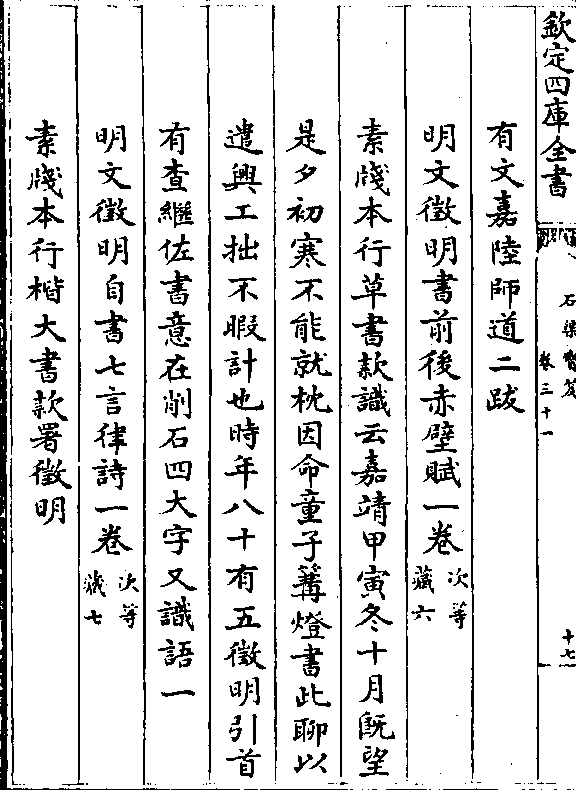 欽定四庫全書
石渠寶笈
卷三十一
十七
有文嘉陸師道二跋
明文徵明書前後赤壁賦一卷次等藏六
素牋本行草書款識云嘉靖甲寅冬十月旣望
是夕初寒不能就枕因命童子篝燈書此聊以
遣興工拙不暇計也時年八十有五徵明引首
有查繼佐書意在削石四大字又識語一
明文徵明自書七言律詩一卷次等藏七
素牋本行楷大書款署徵明